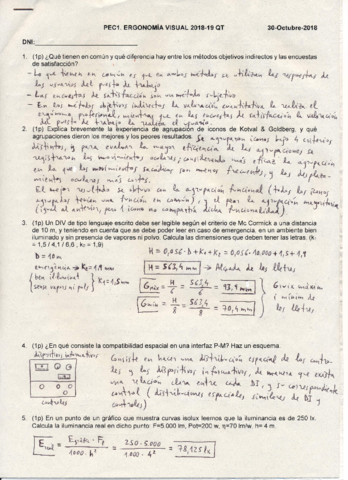 PEC1. ERGONOMÍA VISUAL 2018-19 QT 30-Octubre-2018
DNI:
1. (1p) ¿Qué tienen en común y qué diferencia hay entre los métodos objetivos indirectos y las encuestas
de satisfacción?
- Lo que tienen en común es que en ambos métodos se utilizan las respuestas de
los usuarios del puesto de trabajo
- Las encuestas de satisfacción son un método subjetivo
- En los métodos objetivos indirectos la valoración cuantitativa la realiza el
ergónomo profesional, mientras que en las encuestas de satisfacción la valoración
del puesto de trabajo la realiza el usuario
2. (1p) Explica brevemente la experiencia de agrupación de iconos de Kotval & Goldberg, y qué
agrupaciones dieron los mejores y los peores resultados. Se agruparon iconos bajo 4 criterios
distintos, y para evaluar la mayor eficiencia de las agrupaciones se
registraron los movimientos oculares, considerando más eficaz la agrupación
en la que los movimientos sacádicos son menos frecuentes, y los despla-
mientos oculares más cortos.
El mejor resultado se obtuvo con la agrupación funcional (todos los iconos
agrupados tenían una función en común), y el peor la agrupación
(igual al anterior, pero 1 icono no compartía dicha funcionalidad)
3. (1p) Un DIV de tipo lenguaje escrito debe ser legible según el criterio de Mc.Cormick a una distancia
de 10 m, y teniendo en cuenta que se debe poder leer en caso de emergencia, en un ambiente bien
iluminado y sin presencia de vapores ni polvo. Calcula las dimensiones que deben tener las letras. (k₁
= 1,5 / 4,1 / 6,6 , k₂ = 1,9)
D = 10 m
H = 0,056·D + K₁ + K₂ = 0,056·10.000 + 1,5 + 1,9
emergencia → K₂ = 1,9 mm
H = 563,4 mm → Alçada de les lletres
bien iluminat
sense vapors ni pols
K₁ = 1,5 mm
Gmàx = H/6 = 563,4/6 = 93,9 mm
Gmin = H/8 = 563,4/8 = 70,4 mm
Gruix màxim
i mínim de
les lletres
4. (1p) ¿En qué consiste la compatibilidad espacial en una interfaz P-M? Haz un esquema.
dispositivos informativos
controles
Consiste en hacer una distribución espacial de los contro-
les y los dispositivos informativos, de manera que exista
una relación clara entre cada DI, y su correspondiente
control (distribuciones espaciales similares de DI y
controles)
5. (1p) En un punto de un gráfico que muestra curvas isolux leemos que la iluminancia es de 250 lx.
Calcula la iluminancia real en dicho punto: F=5.000 lm, Pot=200 w, η=70 lm/w, h= 4 m.
= 250·5.000 / 1000·4² = 78,125 lx